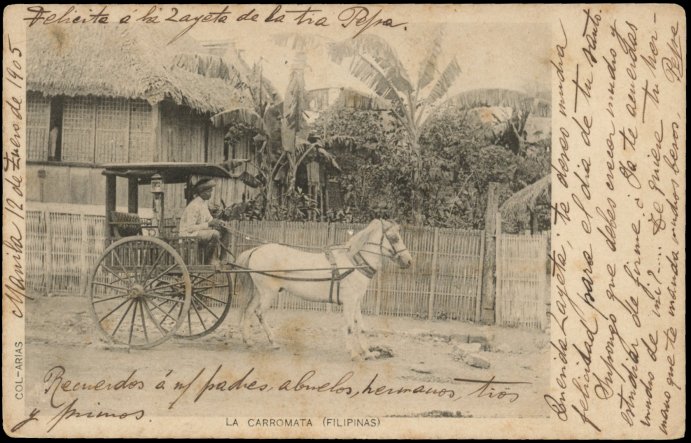 Felicita á la Zayeta de la tra Pepa.
Manila 12 de Enero de 1905
Querida Zayeta, te deseo mucha
felicidad para el dia de tu santo.
Supongo que debes crecer mucho y
estudiar de firme ¿Ya te acuerdas
mucho de mi?.... Te quiere tu her-
mano que te manda muchos besos.
Pepa
Recuerdos á n/ padres, abuelos, hermanos, tios
y primos
LA CARROMATA (FILIPINAS)
COL-ARIAS